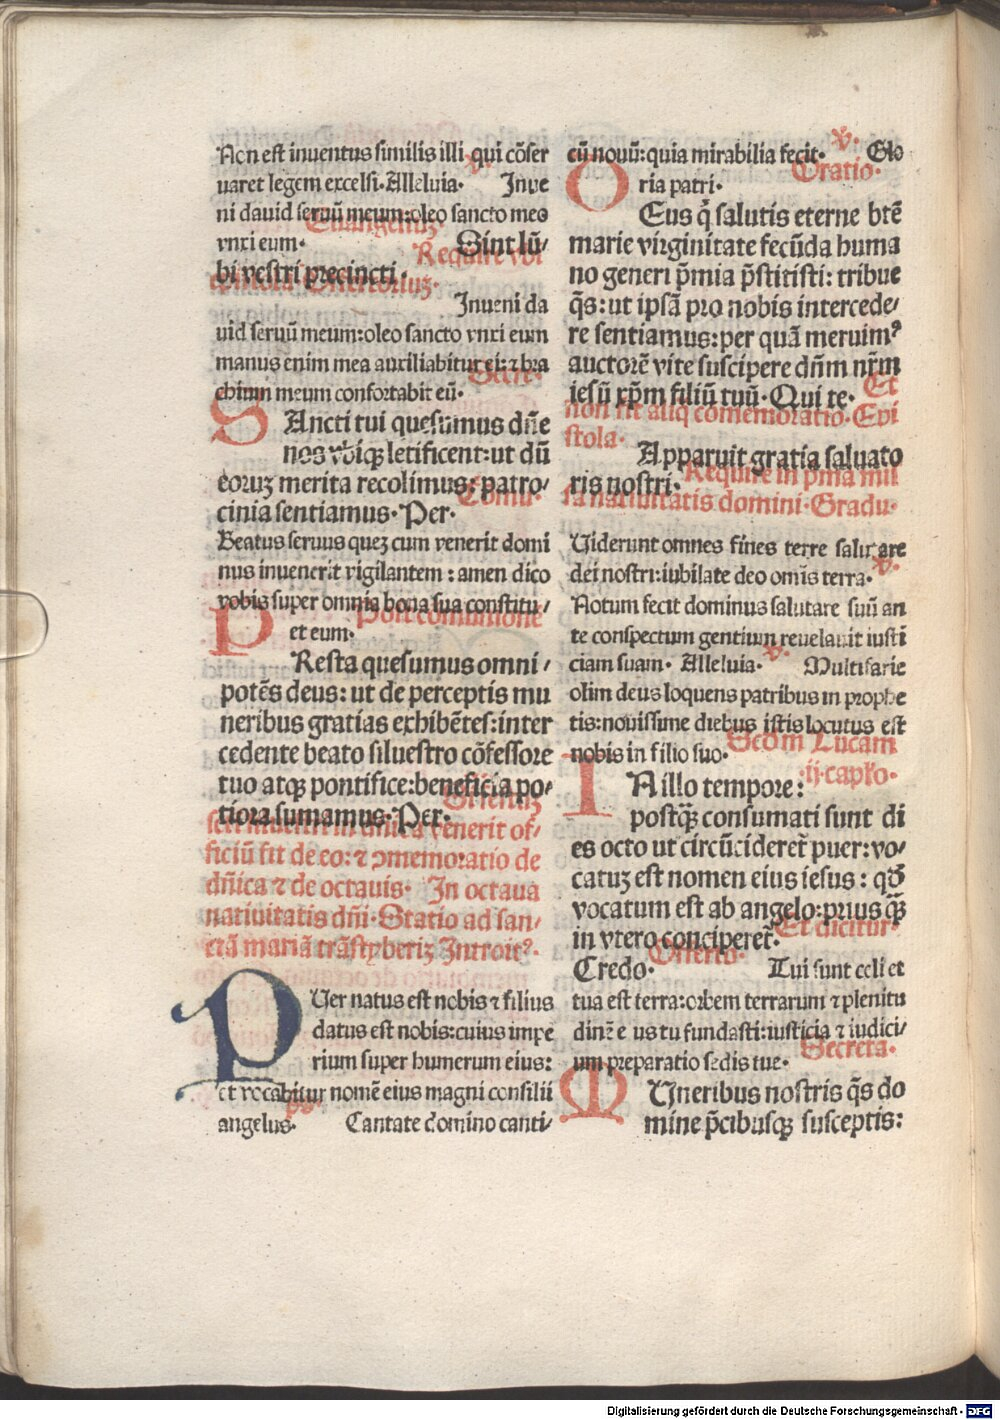 Non est inventus similis illi qui cōser
uaret legem excelsi. Alleluia. v. Inue
ni dauid seruū meum: oleo sancto meo
vnxi eum. Euangeliuꝫ. Sint lū/
bi vestri precincti. Require vbi
epistola. Offertoriuꝫ. Inueni da
uid seruū meum: oleo sancto vnxi eum
manus enim mea auxiliabitur ei: ⁊ bra
chium meum confortabit eū. Secre.
SAncti tui quesumus dn̄e
nos vbiqꝫ letificent: ut dū
eoruꝫ merita recolimus: patro/
cinia sentiamus. Per. Comū.
Beatus seruus queꝫ cum venerit domi
nus inuenerit vigilantem: amen dico
vobis super omnia bona sua constitu/
et eum. Post communionē
PResta quesumus omni/
potēs deus: ut de perceptis mu
neribus gratias exhibētes: inter
cedente beato siluestro cōfessore
tuo atqꝫ pontifice: beneficia po/
tiora sumamus. Per.
venerit of/
ficiū fit de eo: ⁊ ɔmemoratio de
dn̄ica ⁊ de octauis. In octaua
natiuitatis dn̄i. Statio ad san/
ctā mariā trāstyberiꝫ Introitꝰ.
PUer natus est nobis ⁊ filius
datus est nobis: cuius impe
rium super humerum eius:
et vocabitur nomē eius magni consilii
angelus. ps. Cantate domino canti/
cū nouū: quia mirabilia fecit. v. Glo
ria patri. Oratio.
DEus q̄ salutis eterne btē
marie virginitate fecūda huma
no generi p̄mia p̄stitisti: tribue
q̄s: ut ipsā pro nobis intercede/
re sentiamus: per quā meruimꝰ
auctorē vite suscipere dn̄m nr̄m
iesū xp̄m filiū tuū. Qui te. Et
non fit aliq̄ comemoratio. Epi
stola. Apparuit gratia saluato
ris nostri. Require in p̄ma mis
sa natiuitatis domini. Gradu.
Viderunt omnes fines terre salutare
dei nostri: iubilate deo omīs terra. v.
Notum fecit dominus salutare suū an
te conspectum gentium reuelauit iusti
ciam suam. Alleluia. v. Multifarie
olim deus loquens patribus in prophe
tis: nouissime diebus istis locutus est
nobis in filio suo. Scd̄m Lucam
IN illo tempore: ij. capł̄o.
postqꝫ̄ consumati sunt di
es octo ut circūcideret̄ puer: vo/
catuꝫ est nomen eius iesus: qđ
vocatum est ab angelo: priusqꝫ̄
in vtero conciperet̄. Et dicitur
Credo. Offerto. Tui sunt celi et
tua est terra: orbem terrarum ⁊ plenitu
dinē eius tu fundasti: iusticia ⁊ iudici/
um preparatio sedis tue. Secreta.
MUneribus nostris q̄s do
mine p̄cibusqꝫ susceptis:
Digitalisierung gefördert durch die Deutsche Forschungsgemeinschaft - DFG